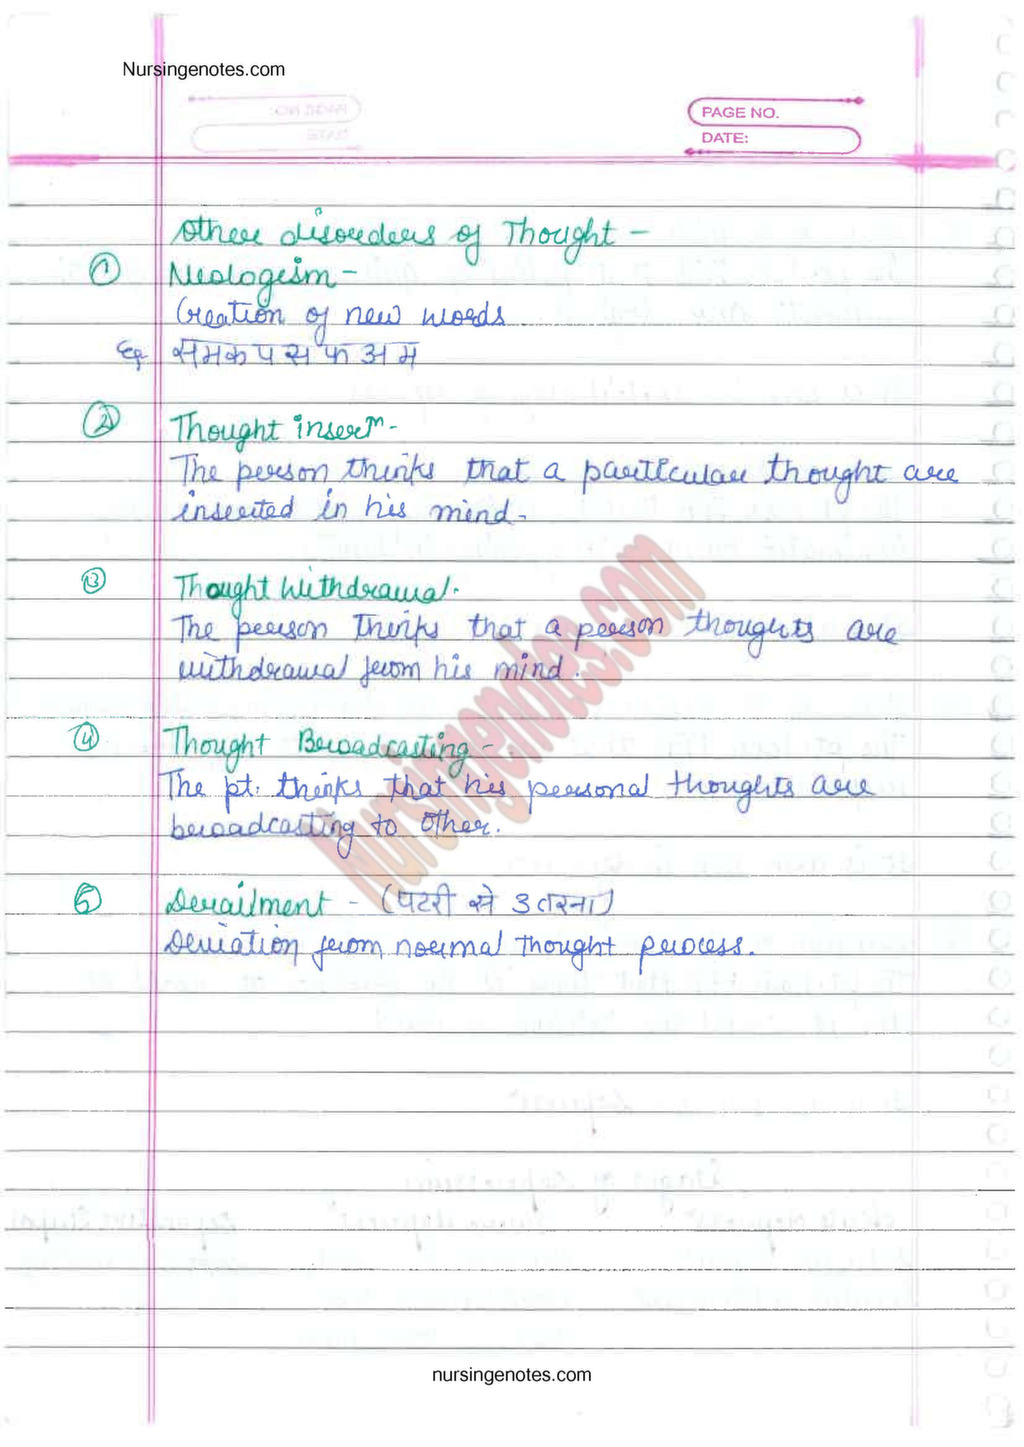 Nursingenotes.com
PAGE NO.
DATE:
Other disorders of Thought -
① Neologism -
Creation of new words
Eg. समकपसफअम
② Thought insertn -
The person thinks that a particular thought are
inserted in his mind.
③ Thought withdrawal.
The person thinks that a person thoughts are
withdrawal from his mind.
④ Thought Broadcasting -
The pt. thinks that his personal thoughts are
broadcasting to other.
⑤ Derailment - (पटरी से उतरना)
Deviation from normal thought process.
Nursingenotes.com
nursingenotes.com